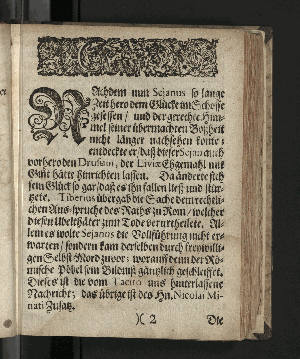 NAchdem nun Sejanus so lange
Zeit hero dem Glücke im Schosse
gesessen / und der gerechte Him-
mel seiner übermachten Boßheit
nicht länger nachsehen konte:
entdeckte er / daß dieser Sejanus auch
vorhero den Drusum, der Liviæ Ehgemahl mit
Gifft hätte hinrichten lassen. Da änderte sich
sein Glück so gar / daß es ihn fallen ließ und stür-
zete. Tiberius übergab die Sache dem rechtli-
chen Aus-spruche des Raths zu Rom / welcher
diesen Übelthäter zum Tode verurtheilete. Al-
lein es wolte Sejanus die Vollführung nicht er-
warten / sondern kam derselben durch freywilli-
gen Selbst-Mord zuvor; worauff denn der Rö-
mische Pöbel sein Bildnüß gäntzlich geschleiffet.
Dieses ist die vom Tacito uns hinterlassene
Nachricht; das übrige ist des Hn. Nicolai Mi-
nati Zusatz.
)( 2 Die